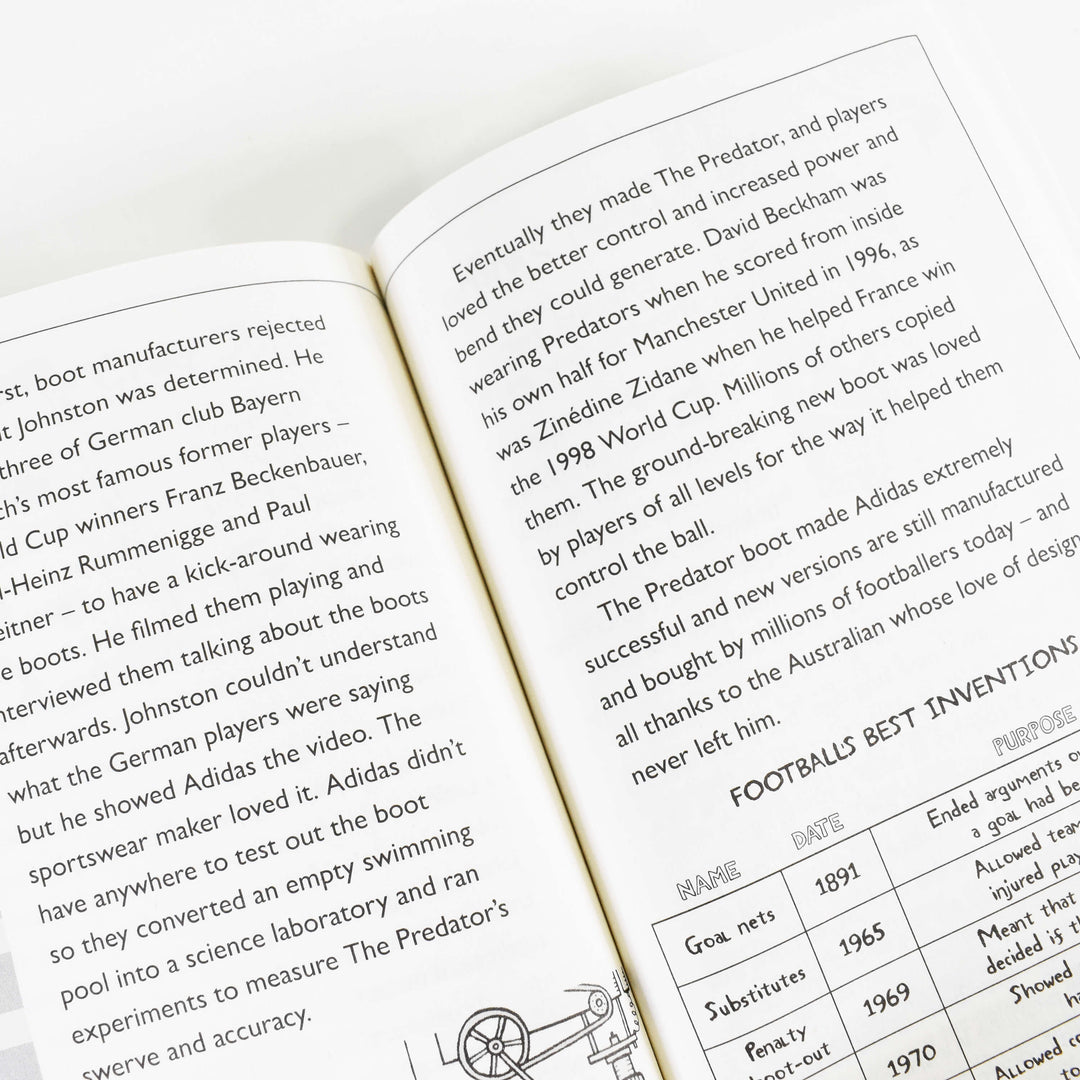 rst, boot manufacturers rejected
t Johnston was determined. He
three of German club Bayern
ch's most famous former players –
ld Cup winners Franz Beckenbauer,
l-Heinz Rummenigge and Paul
eitner – to have a kick-around wearing
e boots. He filmed them playing and
nterviewed them talking about the boots
afterwards. Johnston couldn't understand
what the German players were saying
but he showed Adidas the video. The
sportswear maker loved it. Adidas didn't
have anywhere to test out the boot
so they converted an empty swimming
pool into a science laboratory and ran
experiments to measure The Predator's
swerve and accuracy.
Eventually they made The Predator, and players
loved the better control and increased power and
bend they could generate. David Beckham was
wearing Predators when he scored from inside
his own half for Manchester United in 1996, as
was Zinédine Zidane when he helped France win
the 1998 World Cup. Millions of others copied
them. The ground-breaking new boot was loved
by players of all levels for the way it helped them
control the ball.
The Predator boot made Adidas extremely
successful and new versions are still manufactured
and bought by millions of footballers today – and
all thanks to the Australian whose love of design
never left him.
FOOTBALLS BEST INVENTIONS
NAME DATE PURPOSE
Goal nets 1891 Ended arguments o
a goal had be
Substitutes 1965 Allowed team
injured play
Penalty
oot-out 1969 Meant that
decided is t
1970 Showed
ha
Allowed co
to